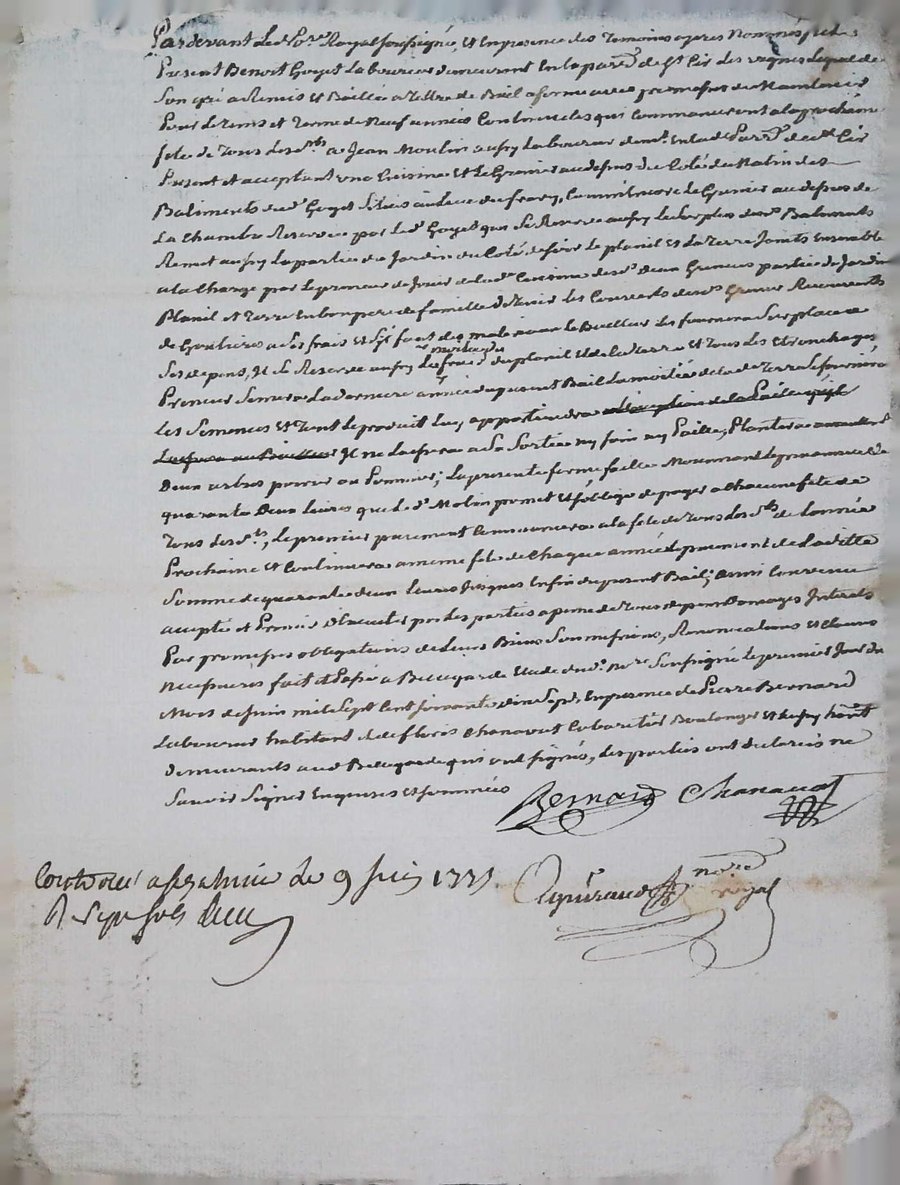 Pardevant Led. No.re Royal soussigné, et En presence des Temoins apres Nommés fut
Present Benoit Goyet Laboureur demeurant En la par.se de St Cir les vignes Lequel de
Son gré a Remis et Baillé a Tittre de Bail a ferme avec promesses de Maintenir
Pour Le tems et Terme de Neuf années Continuelles qui Commanceront a la prochaine
fete de Tous Les S.ts a Jean Moulin aussy Laboureur dem.t En lad. Parr.se de St Cir
Present et acceptant une Cuisine et Le Grenier au dessus du Coté du Matin des
Batiments du d. Goyet Situés au Lieu du
La Chambre Reservée par Led. Goyet que Se Reserve aussy Le Surplus des d. Batiments
Remet aussy La partie de Jardin du Coté de soir Le planil et La Terre Joints Ensemble
a la Charge par Le preneur de Jouir de la d.e Cuisine des d. Deux Greniers partie de Jardin
Planil et Terre En bon pere de famille d'Entretenir les Couverts des d.s Greniers Recouverts
de Goutieres a Ses frais et S'il faut des materiaux Le Bailleur les fournira Sur place a
Ses depens, Et Se Reserve aussy Les du planil et de la Terre et Tous Les Etronchages
Preneur Semera La derniere année du present Bail La moitié de la d.e Terre Le fournira
les Semences et Tout Le produit Luy appartiendra a l'exception de la Paille qu'il
Laissera au Bailleur Il ne Laissera a Sa Sortie ny foin ny Paille, Plantera
Deux arbres poirier ou Pommier; La presente ferme faitte Moyennant Le prix annuel de
quarante Deux Livres que Le d. Molin promet et S'oblige de payer a Chacune fete de
Tous Les S.ts, Le premier payement Commancera a la fete de Tous Les S.ts de l'année
Prochaine et Continuera a meme fete de Chaque année Le payement de La ditte
Somme de quarante deux Livres Jusques En fin du present Bail; ainsi Convenu
accepté et Promis d'Executer par les parties a peine de Tous depens Domages Interets
Par promesses obligations de Leurs Biens Soumissions, Renonciations et Clauses
Necessaires fait et Passé a Bellegarde Etude du d. No.re Soussigné Le premier Jour du
Mois de Juin mil Sept Cent Soixante dix Sept, En presence de Pierre Bernard
Laboureur habitant et de Chanavat Cabaretier Boulanger et aussy habitant
demeurants aud. Bellegarde qui ont Signés, Les parties ont declarés ne
Savoir Signer Enquises et Sommées
Bernard Chanavat
no.re
royal
Controlé a le 9 Juin 1777.
R Sept Sols